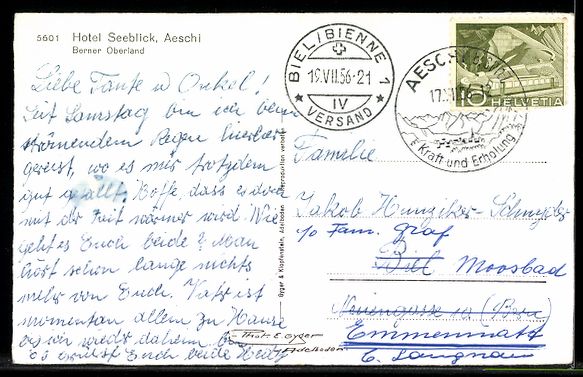 5601 Hotel Seeblick, Aeschi
Berner Oberland
BIEL/BIENNE 1
19.VII.56-21
IV
VERSAND
AESCHI
17.
Kraft und Erholung
10 HELVETIA
Liebe Tante u Onkel!
Seit Samstag bin ich bei
strömendem Regen hierher
gereist, wo es mir trotzdem
gut gefällt. Hoffe, dass es doch
mit der Zeit wärmer wird. Wie
geht es Euch beide? Man
hört schon lange nichts
mehr von Euch. Vater ist
momentan allein zu Hause
wieder daheim
Euch beide Heidy
Gyger & Klopfenstein, Adelboden
Reproduktion verboten
Photo E. Gyger
Adelboden
Familie
Jakob Hunziker-Schnyder
p/o Fam. Graf
Biel Moosbad
Neuengasse
Emmenmatt
b. Langnau